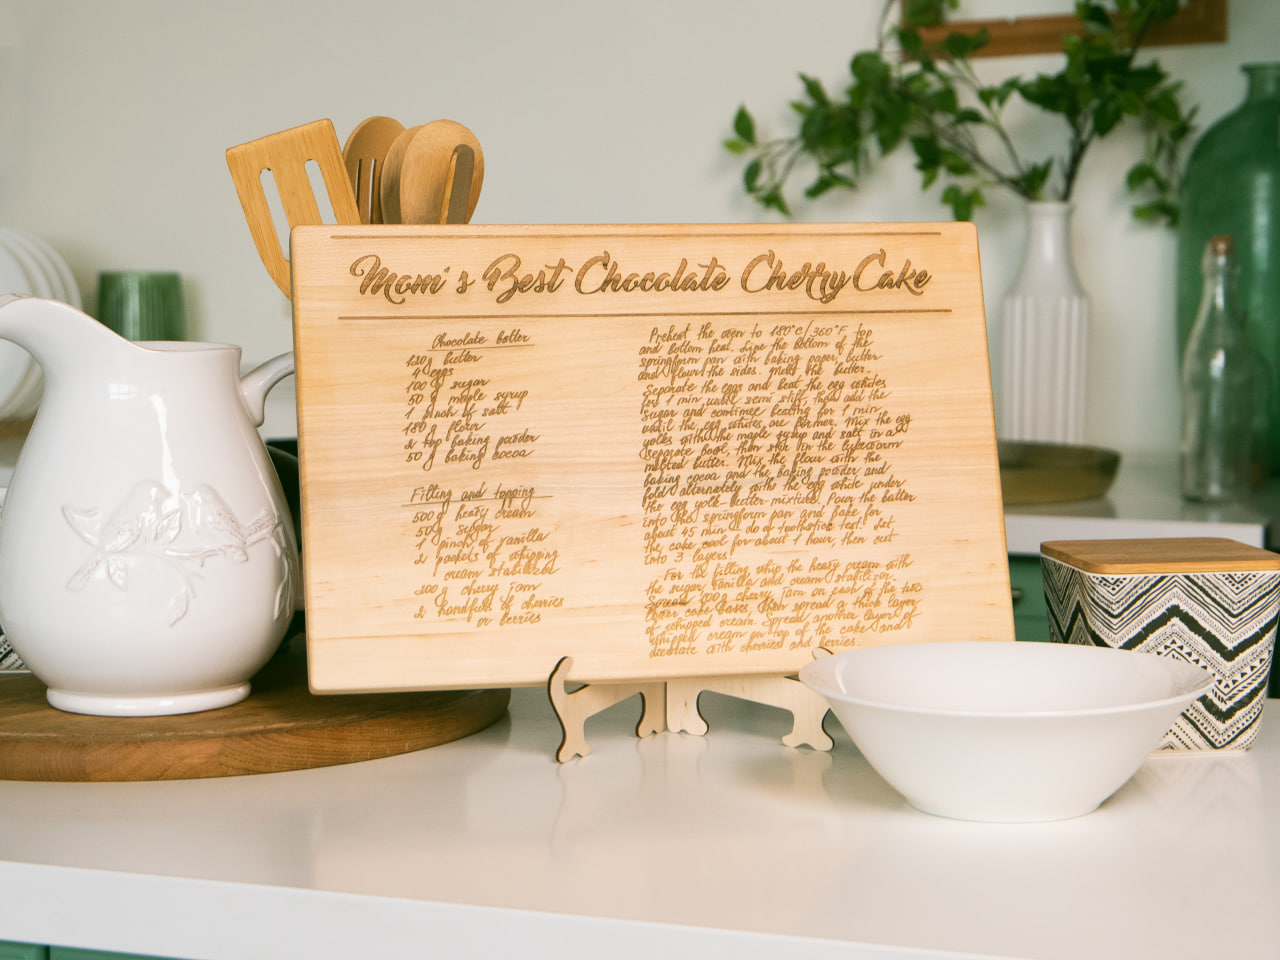 Mom's Best Chocolate Cherry Cake
Chocolate batter
120g butter
4 eggs
100 g sugar
50 g maple syrup
1 pinch of salt
180 g flour
2 tsp baking powder
50 g baking cocoa
Filling and topping
500 g heavy cream
50 g sugar
1 pinch of vanilla
2 packets of whipping
cream stabilizer
200 g cherry jam
2 handfuls of cherries
or berries
Preheat the oven to 180°C/360°F top
and bottom heat. Line the bottom of the
springform pan with baking paper, butter
and flour the sides. Melt the butter.
Separate the eggs and beat the egg whites
for 1 min until semi stiff, then add the
sugar and continue beating for 1 min
until the egg whites are firmer. Mix the egg
yolks with the maple syrup and salt in a
separate bowl, then stir in the lukewarm
melted butter. Mix the flour with the
baking cocoa and the baking powder and
fold alternately with the egg white under
the egg yolk-butter-mixture. Pour the batter
into the springform pan and bake for
about 45 min & do of toothstick test! Let
the cake cool for about 1 hour, then cut
into 3 layers.
For the filling whip the heavy cream with
the sugar, vanilla and cream stabilizer.
Spread 100g cherry jam on each of the two
lower cake bases, then spread a thick layer
of whipped cream. Spread another layer of
whipped cream on top of the cake and
decorate with cherries and berries.